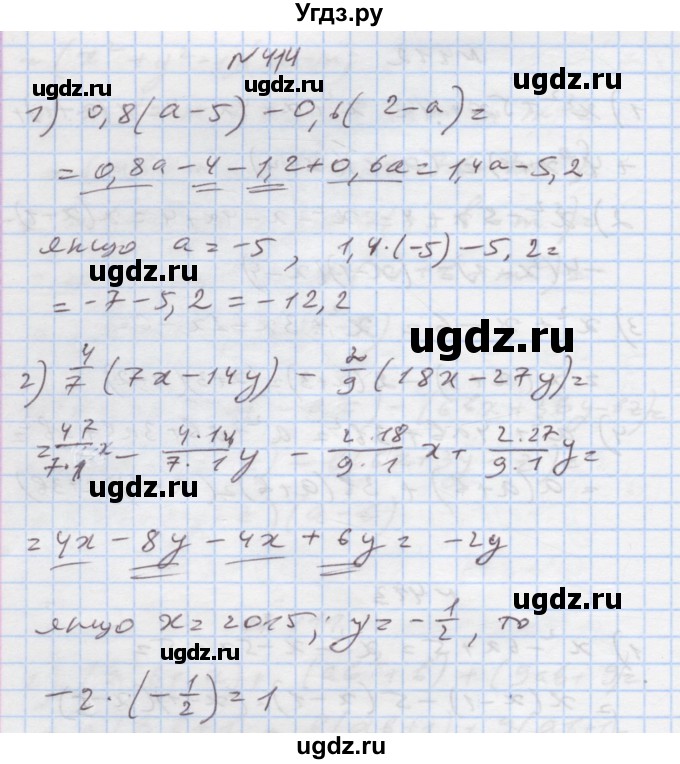 Угдз.ру
№414
ugdz.ru ugdz.ru
1) 0,8(a-5)-0,6(2-a)=
ugdz.ru
=0,8a-4-1,2+0,6a=1,4a-5,2
якщо a=-5, 1,4·(-5)-5,2=
ugdz.ru
=-7-5,2=-12,2
ugdz.ru
2) 4/7(7x-14y)-2/9(18x-27y)=
=4·7/7·1x-4·14/7·1y-2·18/9·1x+2·27/9·1y=
ugdz.ru
=4x-8y-4x+6y=-2y
ugdz.ru
якщо x=2015; y=-1/2, то
ugdz.ru
-2·(-1/2)=1
ugdz.ru